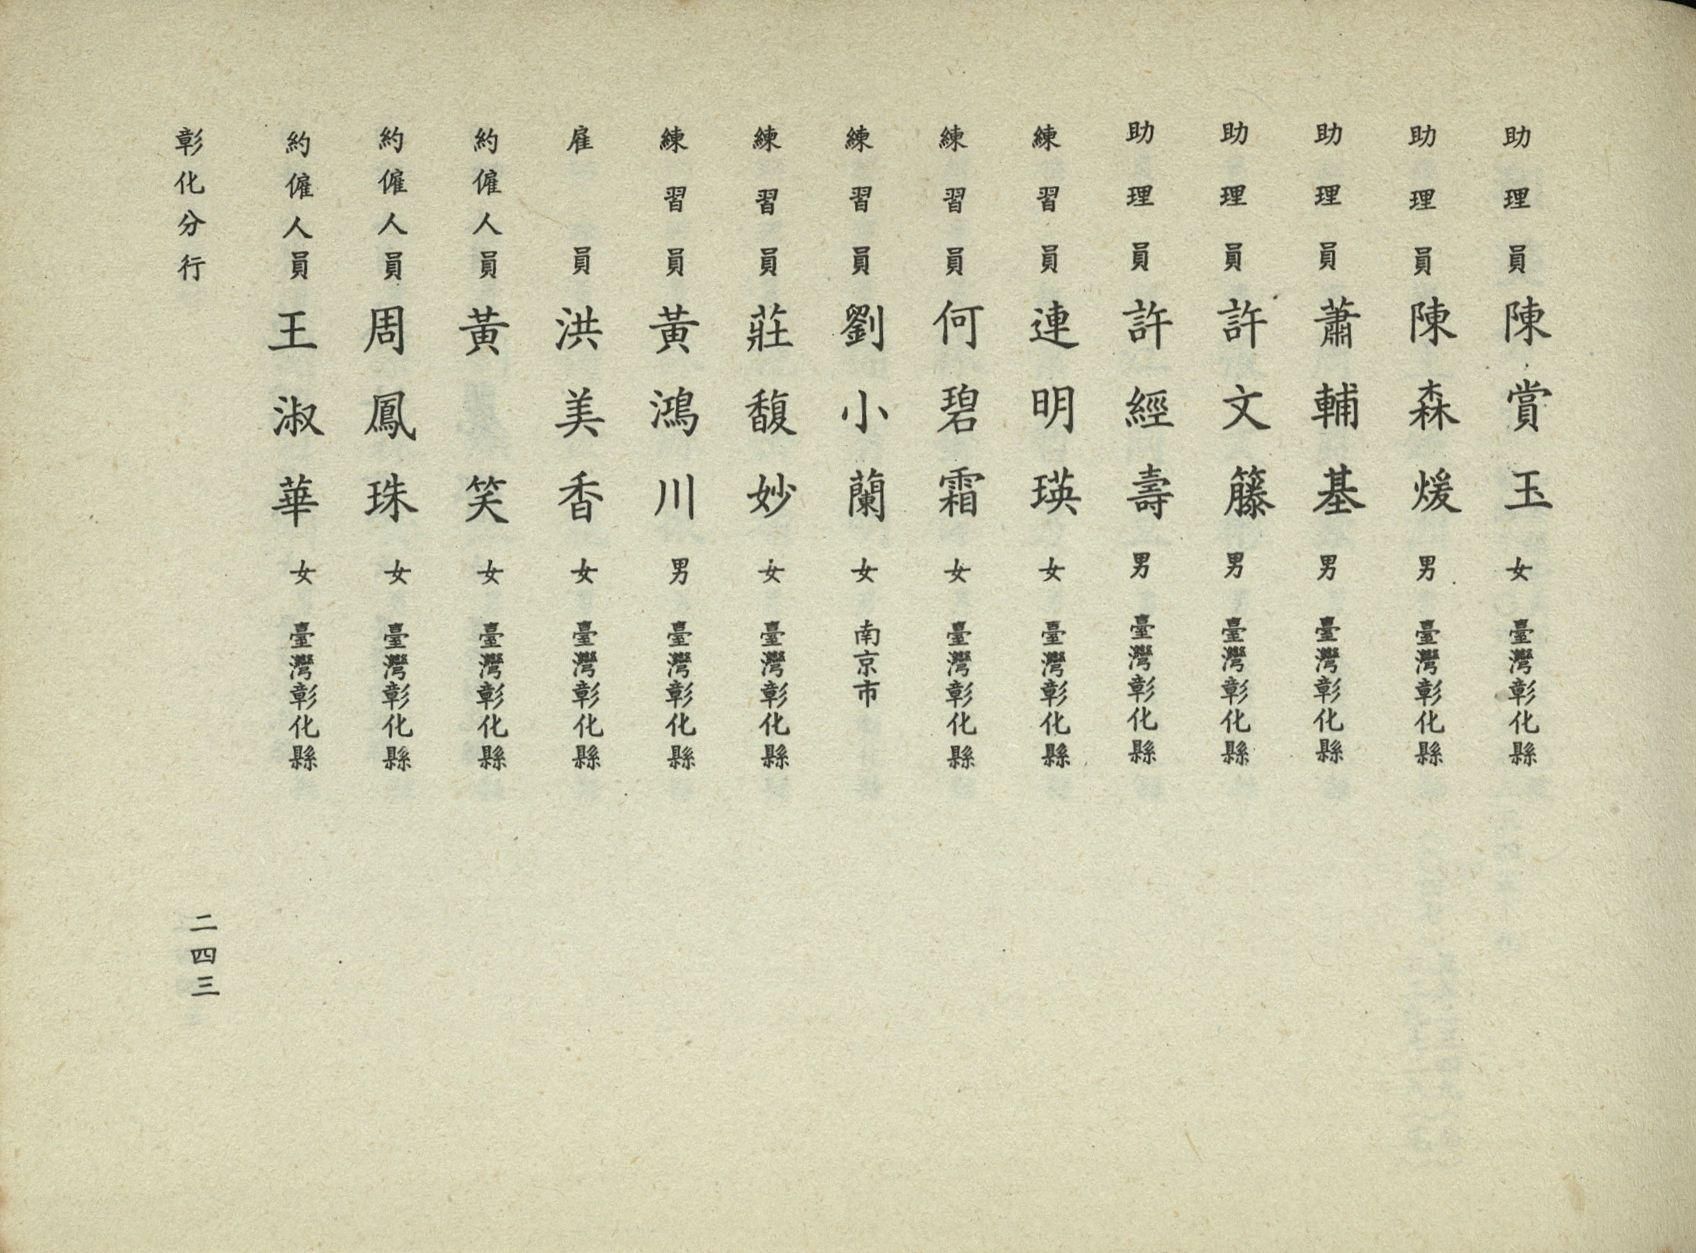 助理員 陳賞玉 女 臺灣彰化縣
助理員 陳森煖 男 臺灣彰化縣
助理員 蕭輔基 男 臺灣彰化縣
助理員 許文籐 男 臺灣彰化縣
助理員 許經壽 男 臺灣彰化縣
練習員 連明瑛 女 臺灣彰化縣
練習員 何碧霜 女 臺灣彰化縣
練習員 劉小蘭 女 南京市
練習員 莊馥妙 女 臺灣彰化縣
練習員 黃鴻川 男 臺灣彰化縣
雇員 洪美香 女 臺灣彰化縣
約僱人員 黃笑 女 臺灣彰化縣
約僱人員 周鳳珠 女 臺灣彰化縣
約僱人員 王淑華 女 臺灣彰化縣
彰化分行
二四三